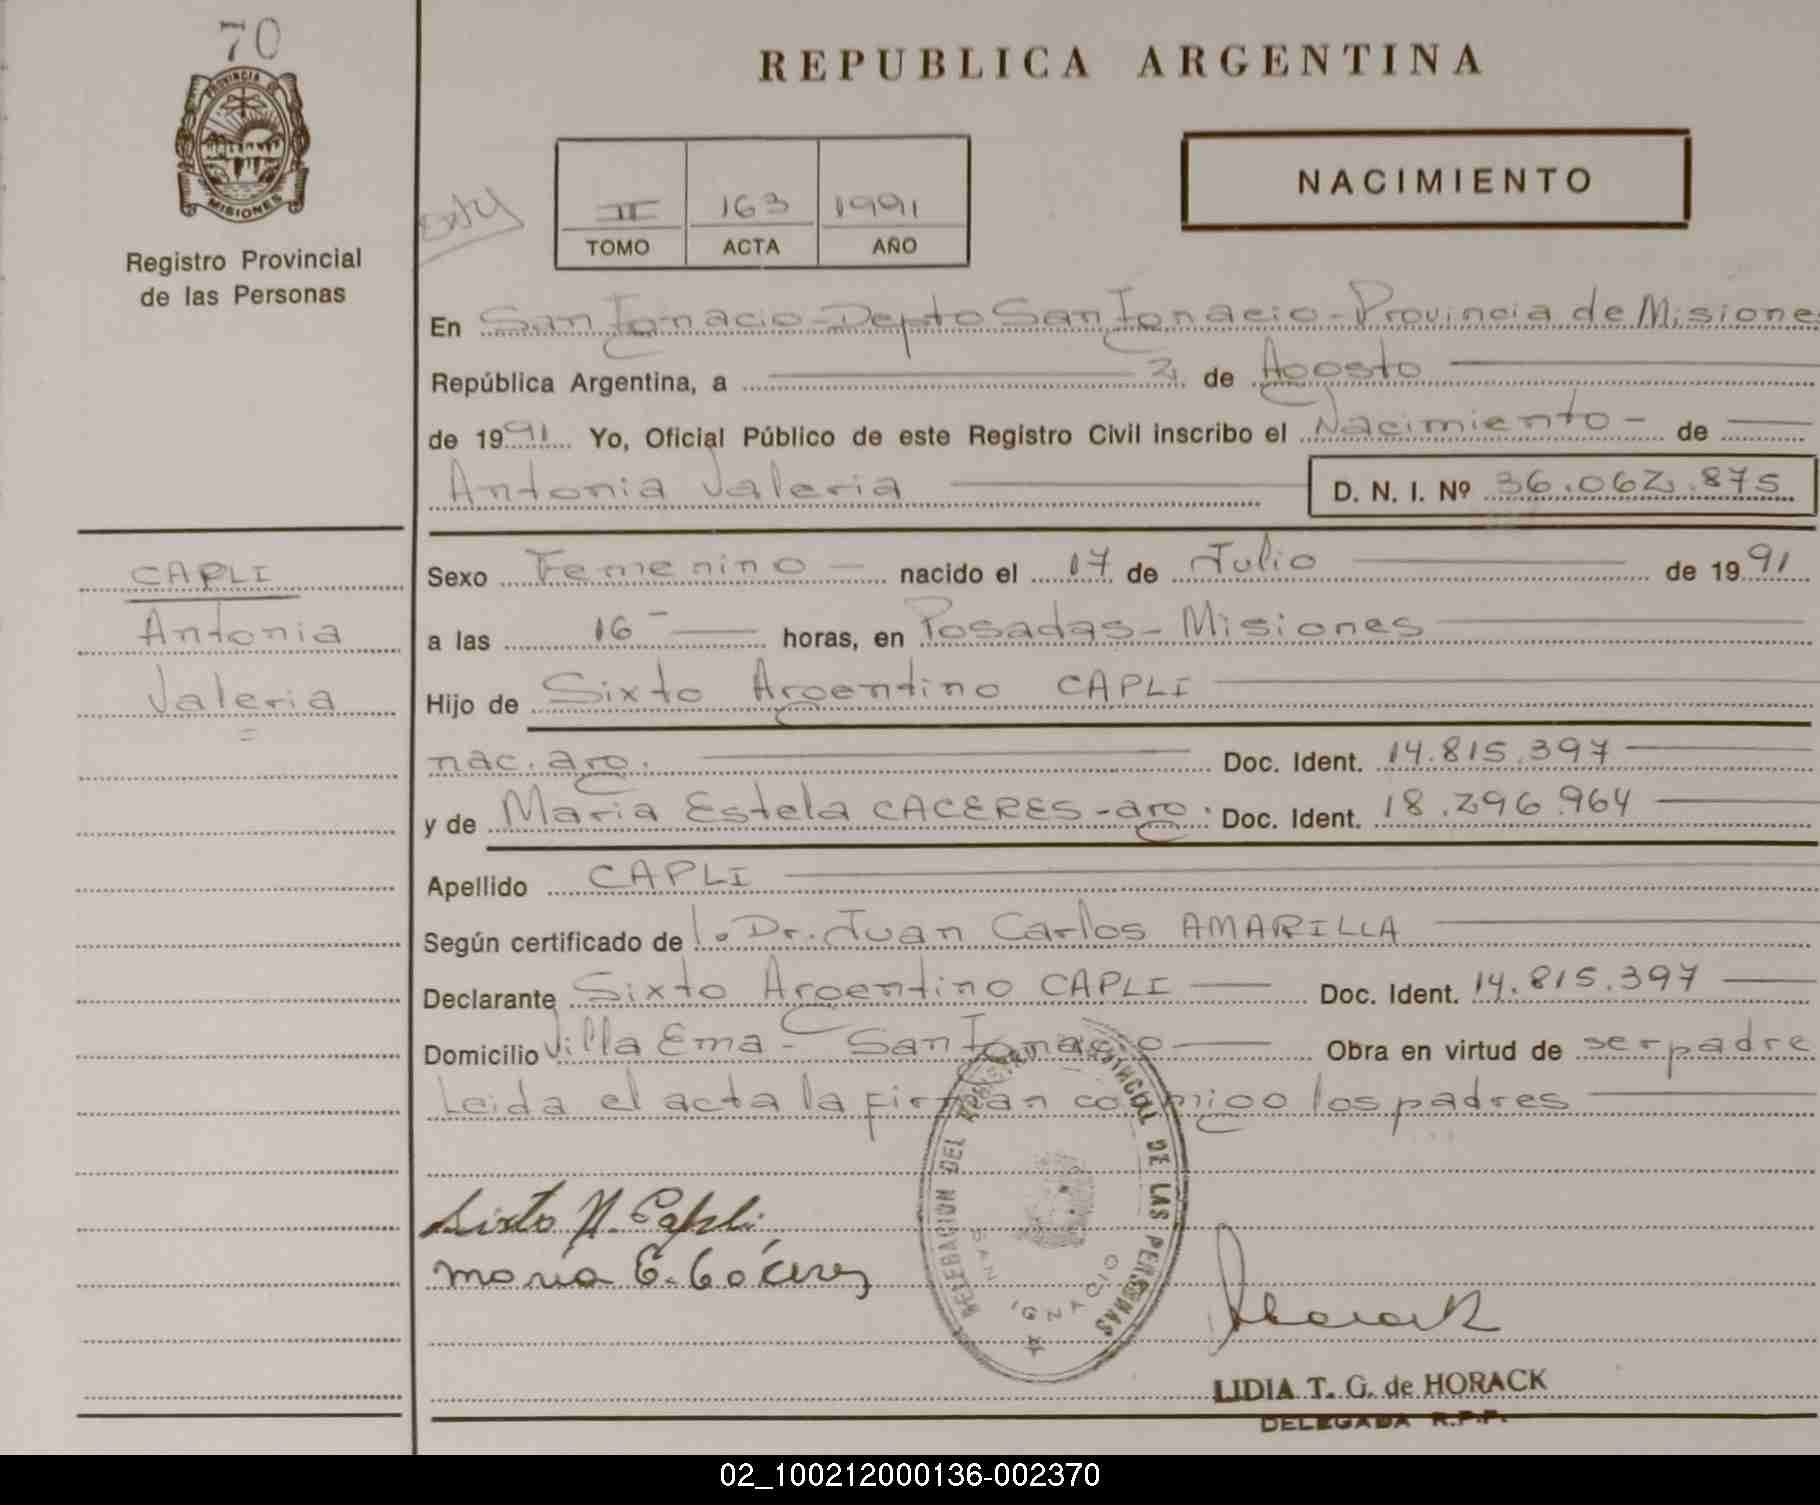 70
PROVINCIA DE
MISIONES
Registro Provincial
de las Personas
REPUBLICA ARGENTINA
II 163 1991
TOMO ACTA AÑO
NACIMIENTO
En San Ignacio - Depto San Ignacio - Provincia de Misiones
República Argentina, a 2 de Agosto
de 1991 Yo, Oficial Público de este Registro Civil inscribo el Nacimiento - de
Antonia Valeria
D. N. I. Nº 36.062.875
CAPLI
Antonia
Valeria
Sexo Femenino nacido el 17 de Julio de 1991
a las 16 horas, en Posadas - Misiones
Hijo de Sixto Argentino CAPLI
nac. arg. Doc. Ident. 14.815.397
y de Maria Estela CACERES - arg. Doc. Ident. 18.296.964
Apellido CAPLI
Según certificado de l. Dr. Juan Carlos AMARILLA
Declarante Sixto Argentino CAPLI Doc. Ident. 14.815.397
Domicilio Villa Ema - San Ignacio Obra en virtud de ser padre
Leida el acta la firman conmigo los padres
DELEGACION DEL REGISTRO PROVINCIAL DE LAS PERSONAS
SAN IGNACIO
Sixto A. Capli
Maria E. Cáceres
Horack
LIDIA T. G. de HORACK
DELEGADA R.P.P.
02_100212000136-002370